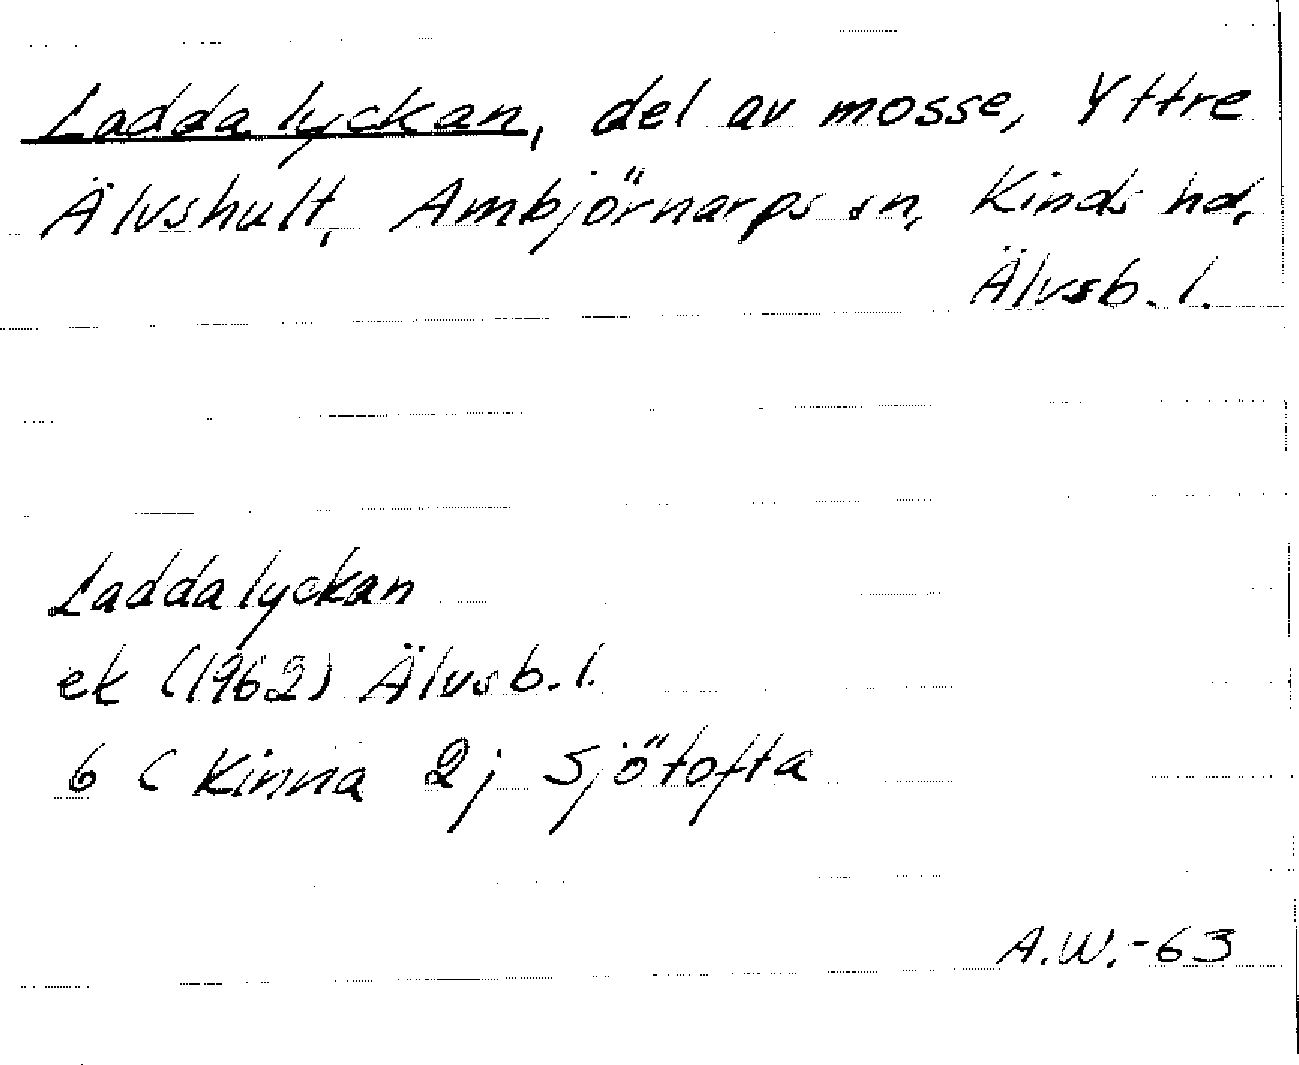 Laddalyckan, del av mosse, Yttre
Älvshult, Ambjörnarps sn, Kinds hd,
Älvsb. l.
Laddalyckan
ek (1962) Älvsb. l.
6 C Kinna 2j Sjötofta
A.W.-63